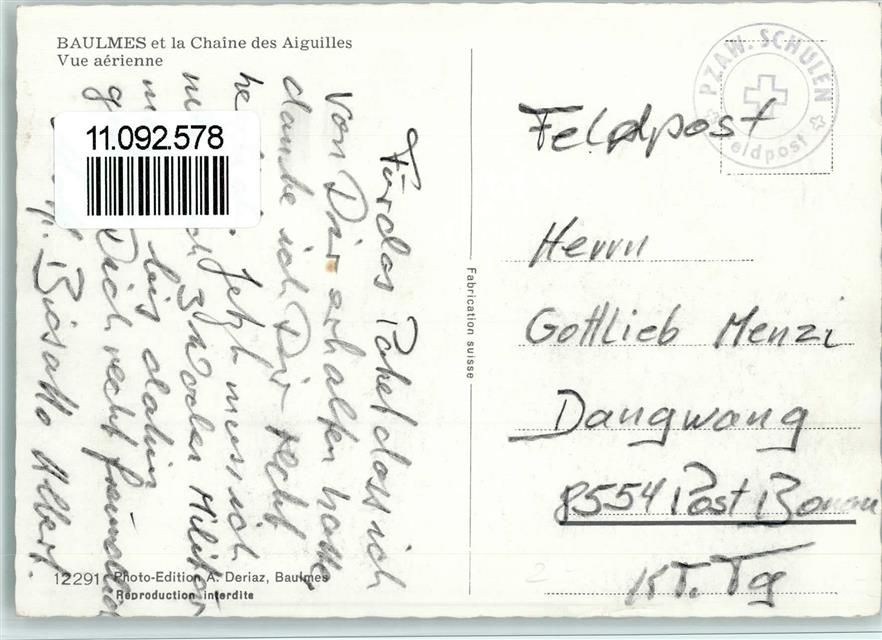 BAULMES et la Chaîne des Aiguilles
Vue aérienne
11.092.578
Für das Paket dass ich
von Dir erhalten hatte,
danke ich Dir recht
Jetzt muss ich
3 Wochen Militär
bis dahin
Dich recht
Albert.
12291 Photo-Edition A. Deriaz, Baulmes
Reproduction interdite
Fabrication suisse
PZAW. SCHULEN
Feldpost
Feldpost
Herrn
Gottlieb Menzi
Dangwang
8554 Post Bonau
KT. Tg